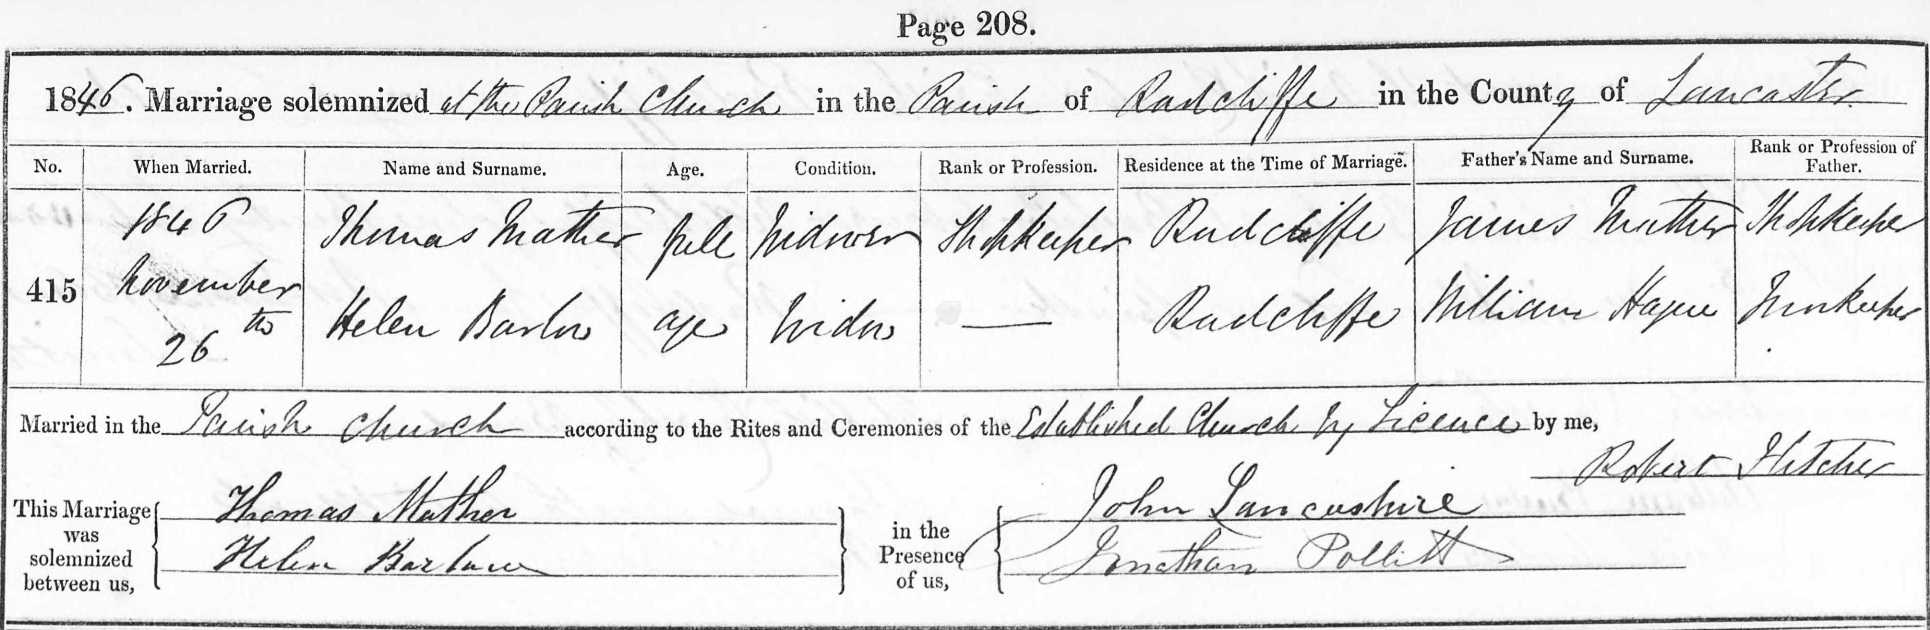 Page 208.
1846. Marriage solemnized at the Parish Church in the Parish of Radcliffe in the County of Lancaster
No. When Married. Name and Surname. Age. Condition. Rank or Profession. Residence at the Time of Marriage. Father's Name and Surname. Rank or Profession of Father.
415 1846 November 26th Thomas Mather full Widower Shopkeeper Radcliffe James Mather Shopkeeper
Helen Barlow age Widow — Radcliffe William Hague Innkeeper
Married in the Parish Church according to the Rites and Ceremonies of the Established Church by Licence by me,
Robert Fletcher
This Marriage was solemnized between us, Thomas Mather in the Presence of us, John Lancashire
Helen Barlow Jonathan Pollitt